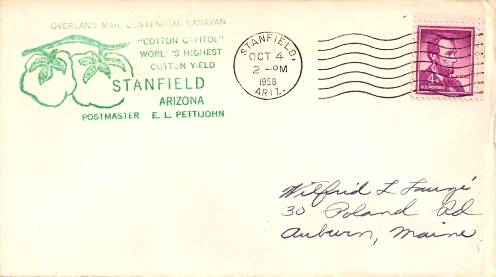 OVERLAND MAIL CENTENNIAL CARAVAN
"COTTON CAPITOL"
WORLD'S HIGHEST
COTTON YIELD
STANFIELD
ARIZONA
POSTMASTER E. L. PETTIJOHN
STANFIELD,
OCT 4
2 - PM
1958
ARIZ.
4¢
U.S. POSTAGE
Wilfrid L
30 Poland Rd
Auburn, Maine